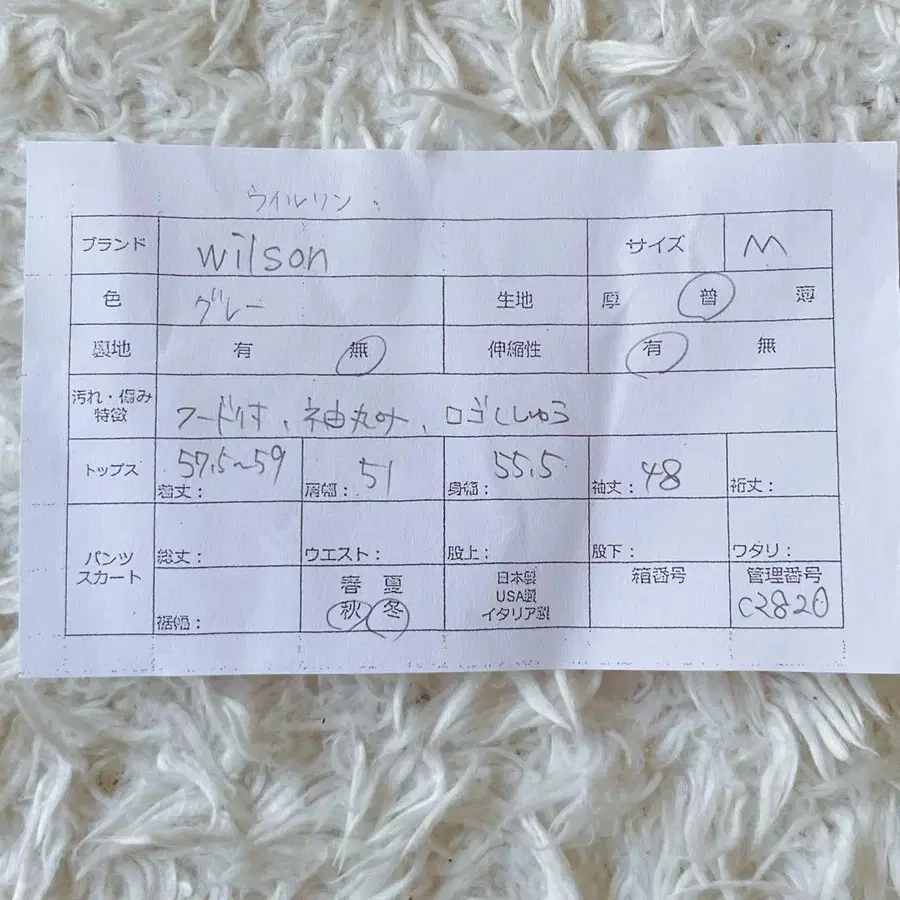 ウイルソン
ブランド wilson サイズ M
色 グレー 生地 厚 普 薄
裏地 有 無 伸縮性 有 無
汚れ・傷み
特徴 フード付、袖丸み、ロゴししゅう
トップス 着丈： 57.5~59 肩幅： 51 身幅： 55.5 袖丈： 48 裄丈：
パンツ
スカート
総丈： ウエスト： 股上： 股下： ワタリ：
裾幅： 春 夏
秋 冬
日本製
USA製
イタリア製
箱番号
管理番号
C2820